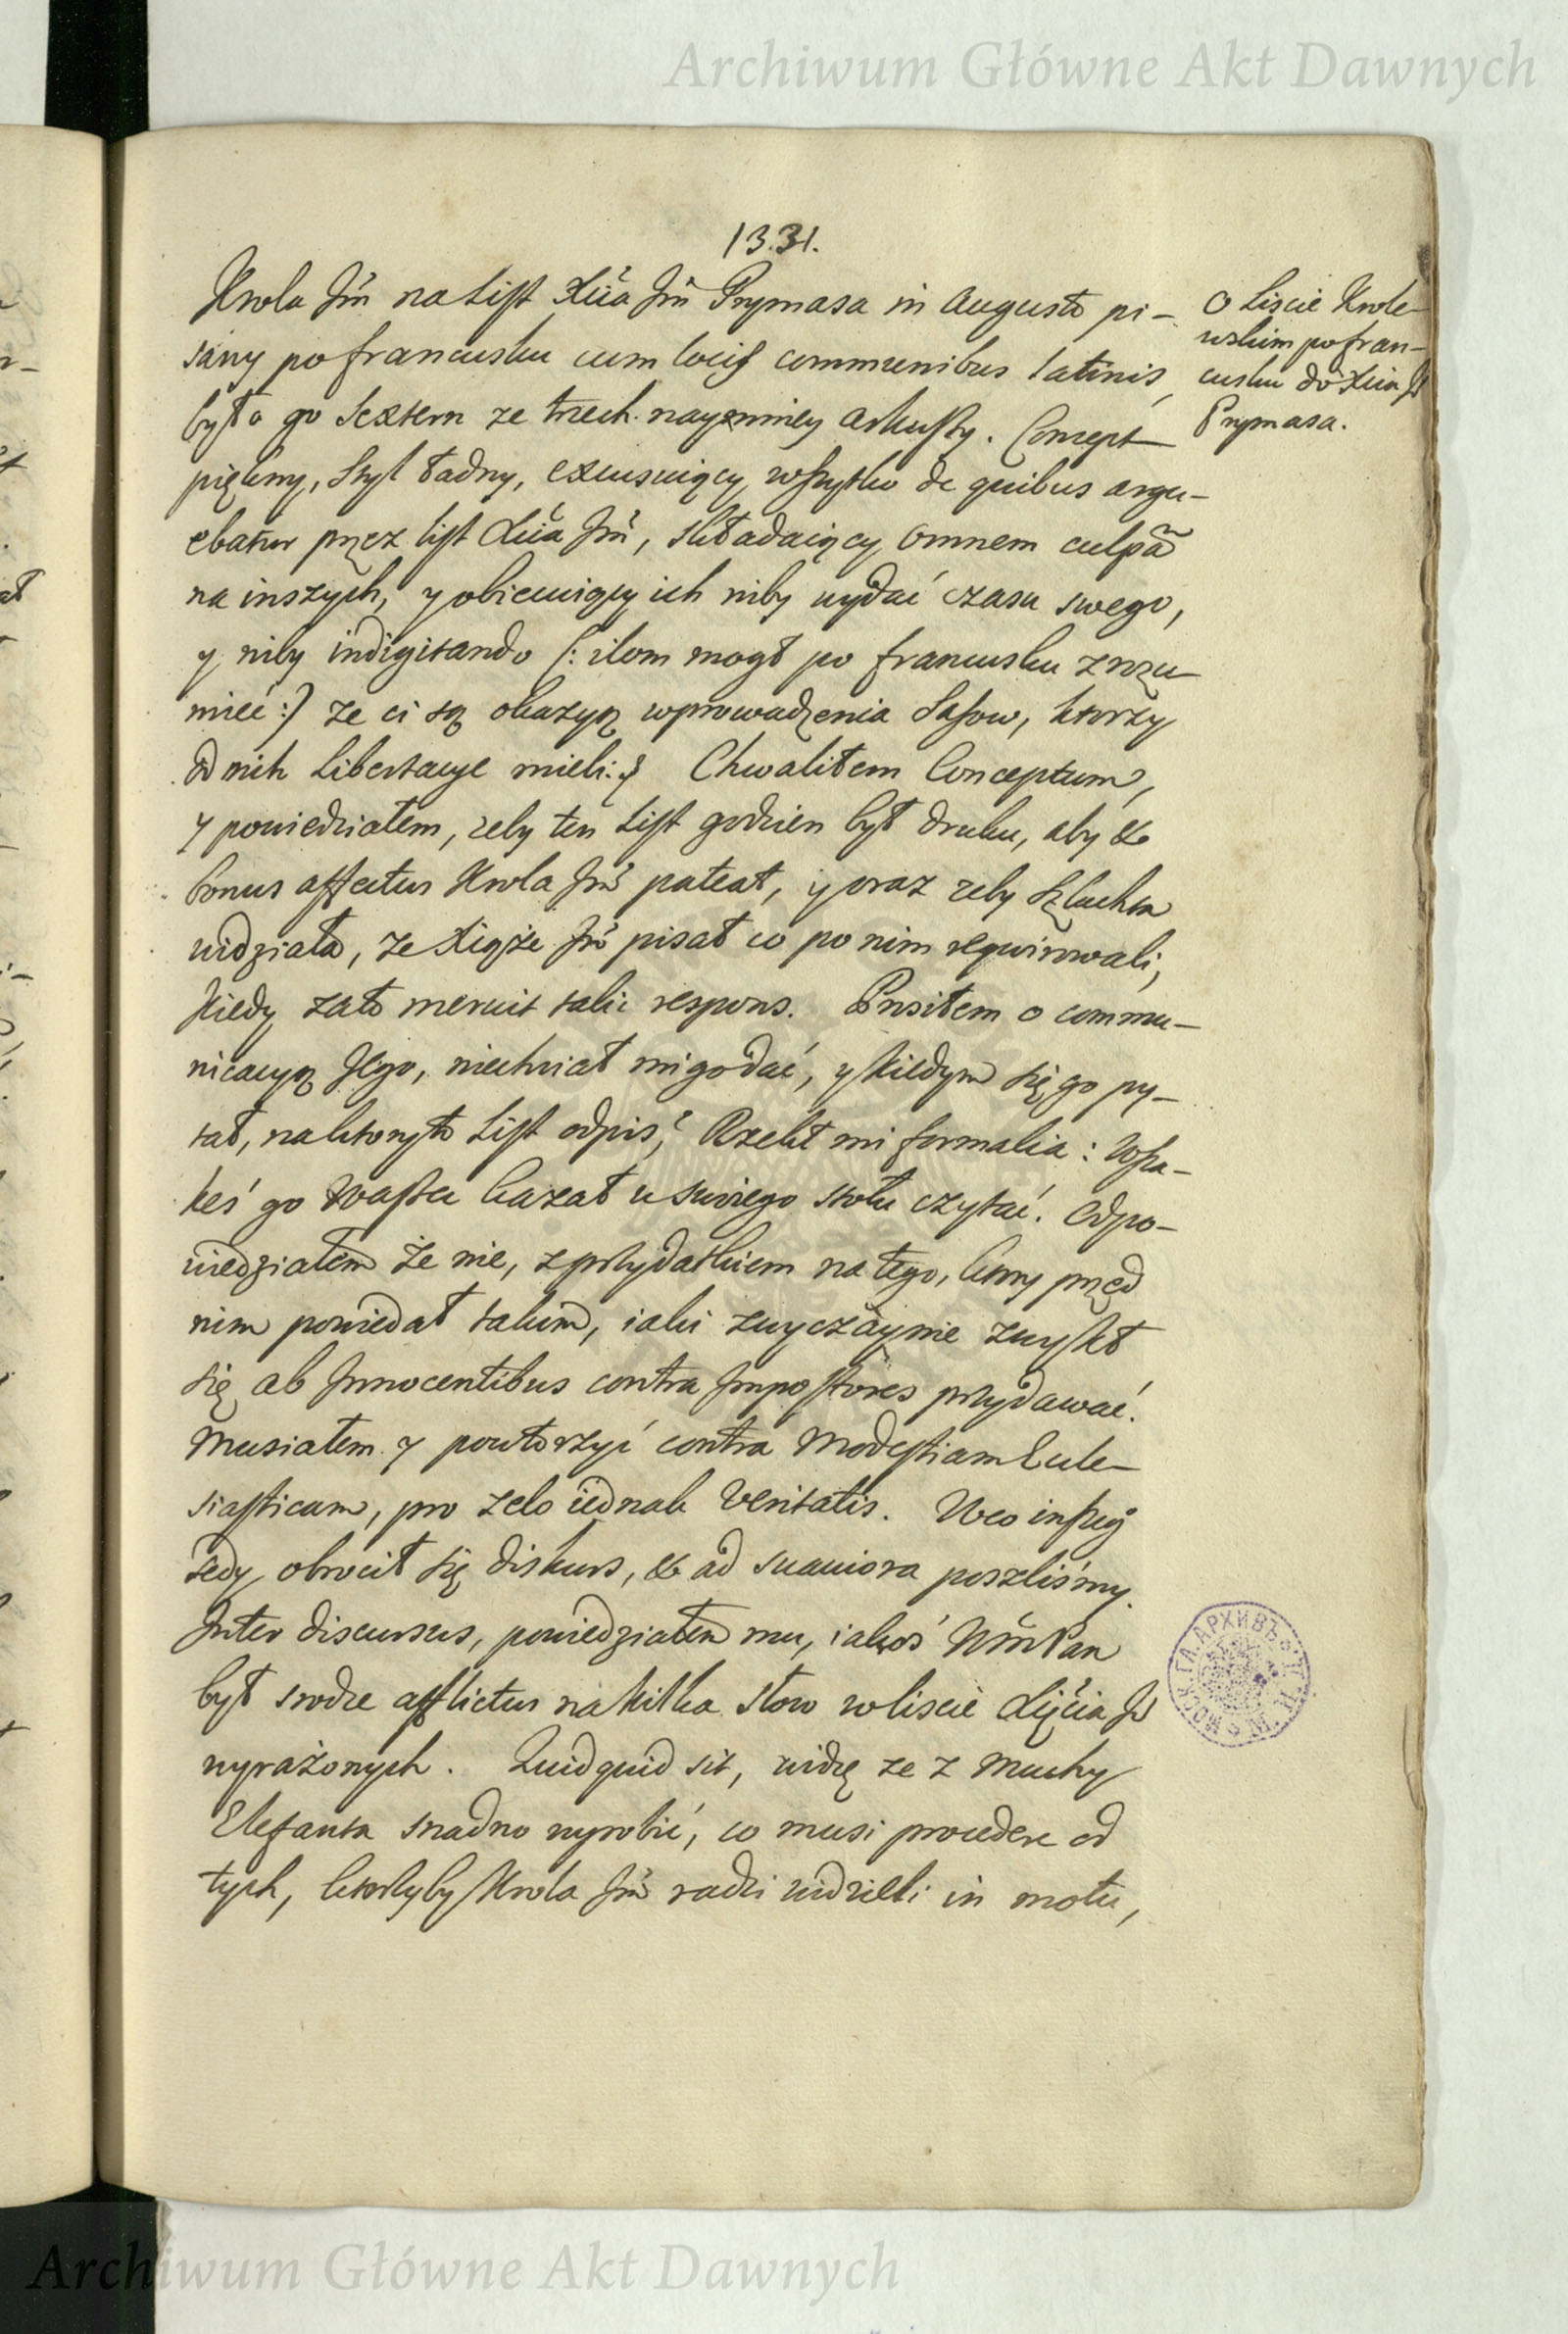 Archiwum Główne Akt Dawnych
1331.
Krola Jm̃ na List Xcia Jm̃ Prymasa in Augusto pi-
sany po francusku cum locis communibus latinis,
było go Sextern ze trzech naymniey Arkuszy. Concept
piękny, Styl ładny, excusuiący wszystko de quibus argu-
ebatur przez list Xcia Jm̃, składaiący Omnem culpã
na inszych, y obiecuiący ich niby wydać czasu swego,
y niby indigitando (: ilom mogł po francusku zrozu-
mieć :) ze ci są okazyą wprowadzenia Sasow, ktorzy
od nich Libertacye mieli. Chwaliłem Conceptum,
y powiedziałem, zeby ten List godzien był druku, aby &
bonus affectus Krola Jm̃ pateat, y oraz zeby Szlachta
widziała, ze Xiąże Jm̃ pisał co po nim requirowali,
kiedy zato meruit taki respons. Prosiłem o commu-
nicacyą Jego, niechciał mi go dać, y kiedym się go py-
tał, na ktoryto List odpis? Rzekł mi formalia: Wsza-
keś go Waszeć kazał u swoiego stołu czytać. Odpo-
wiedziałem że nie, z przydatkiem na tego, ktory przed
nim powiedał takim, iaki zwyczaynie zwykł
się ab Innocentibus contra Impostores przydawać.
Musiałem y powtorzyć contra Modestiam Eccle-
siasticam, pro zelo iednak Veritatis. W co inszeg̃
tedy obrocił się diskurs, & ad suaviora poszliśmy.
Inter discursus, powiedziałem mu, iakoś Wm̃ Pan
był srodze afflictus na kilka słow w liscie Xięcia Jḿ
wyrażonych. Quidquid sit, widzę ze z Muchy
Elefanta snadno wyrobić, co musi procedere od
tych, ktorzyby Krola Jm̃ radzi widzieli in motu,
O Liscie Krole-
wskim po fran-
cusku do Xcia Jḿ
Prymasa.
Archiwum Główne Akt Dawnych